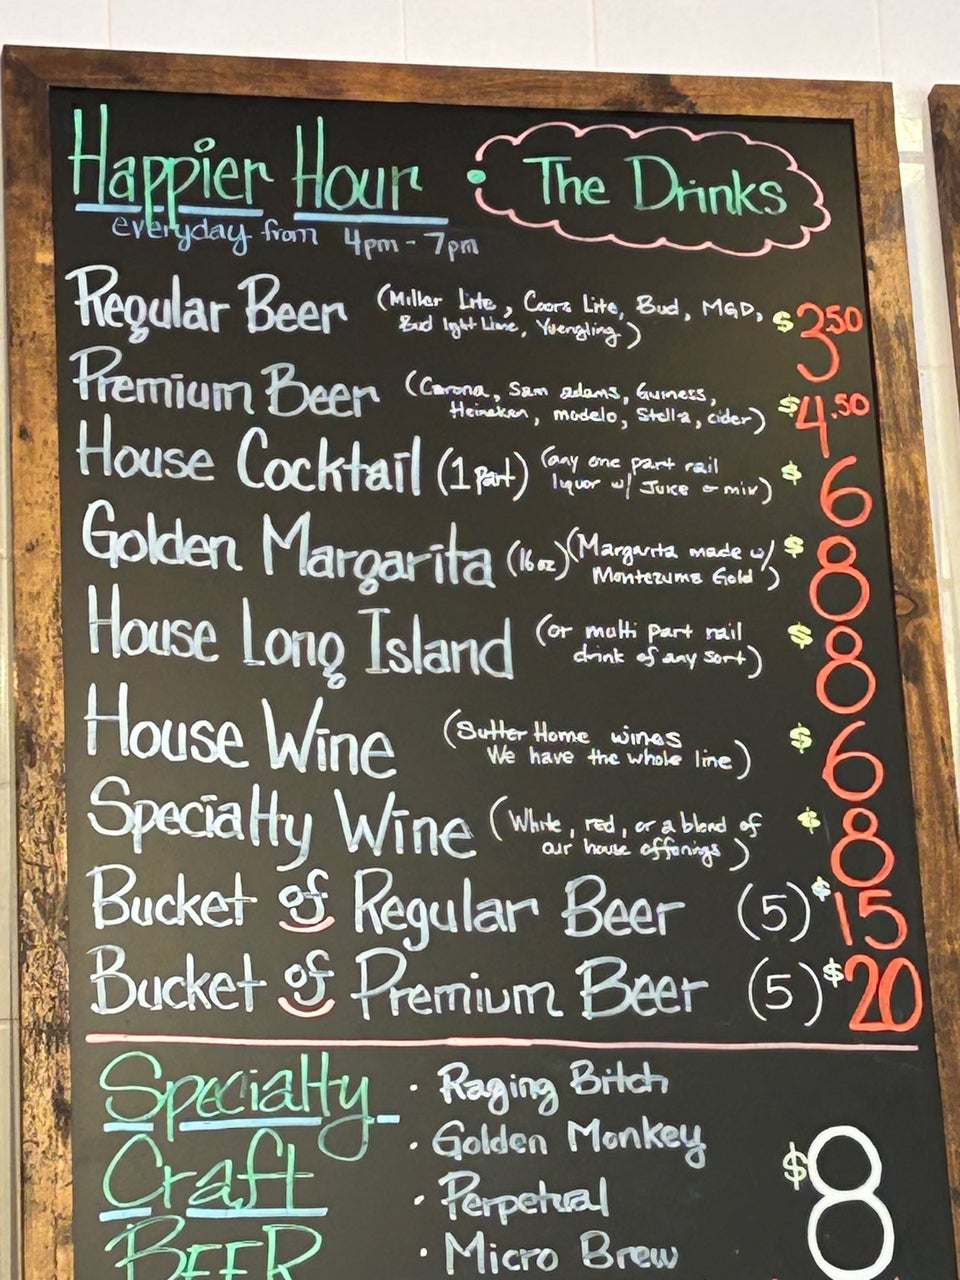 Happier Hour : The Drinks
everyday from 4pm - 7pm
Regular Beer (Miller Lite, Coors Lite, Bud, MGD, $3.50
Bud light Lime, Yuengling)
Premium Beer (Carona, Sam adams, Guiness, $4.50
Heineken, modelo, Stella, cider)
House Cocktail (1 Part) (any one part rail $6
liquor w/ Juice or mix)
Golden Margarita (16oz) (Margarita made w/ $8
Montezuma Gold)
House Long Island (or multi part rail $8
drink of any sort)
House Wine (Sutter Home wines $6
We have the whole line)
Specialty Wine (White, red, or a blend of $8
our house offerings)
Bucket of Regular Beer (5) $15
Bucket of Premium Beer (5) $20
Specialty · Raging Bitch
Craft · Golden Monkey $8
BEER · Perpetual
· Micro Brew